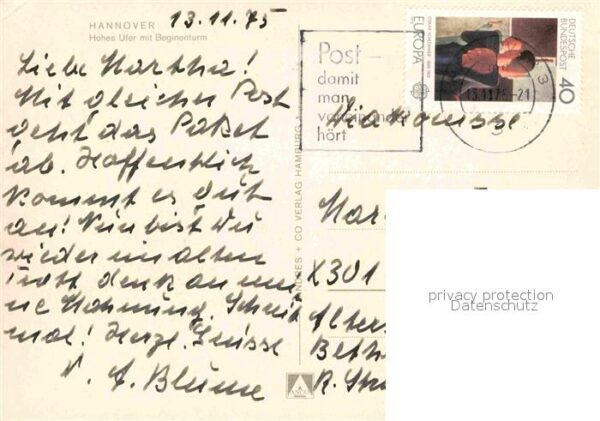 HANNOVER
Hohes Ufer mit Beginenturm
13.11.75
Liebe Martha!
Mit gleicher Post
geht das Paket
ab. Hoffentlich
kommt es gut
an! Nun bist Du
wieder im alten
Trott denk an mei
ne Mahnung. Schreib
mal! Herzl. Grüsse
A. Blume
ANDRES + CO VERLAG HAMBURG
Post –
damit
man
voneinander
hört
13.11.75-21
3
EUROPA
DEUTSCHE
BUNDESPOST
40
Mar
X301
Alters
Beth
R. Str
privacy protection
Datenschutz